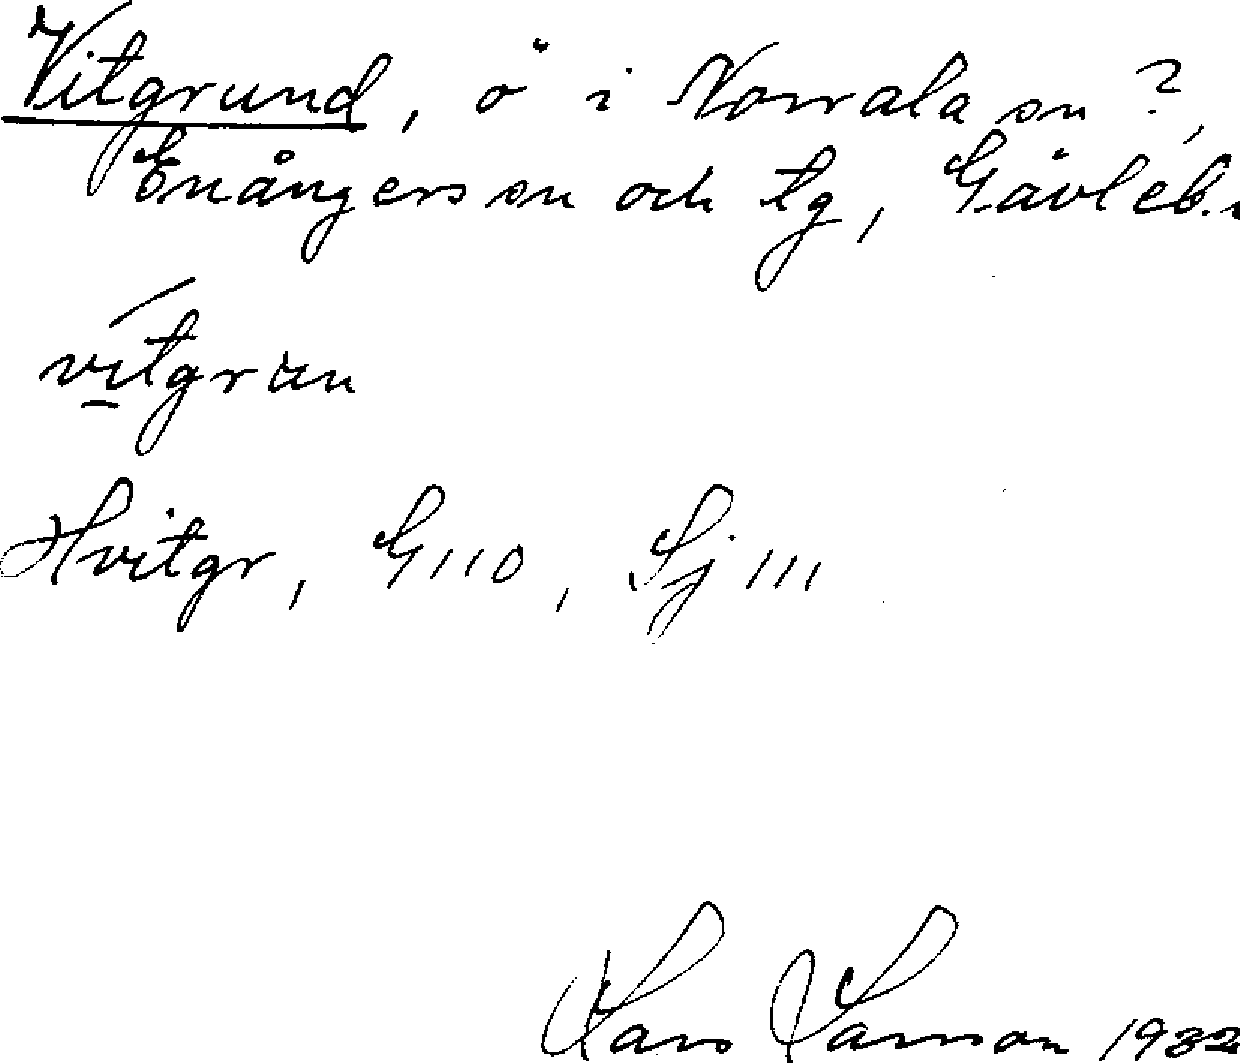 Vitgrund, ö i Norrala sn ?,
Enångers sn och tg, Gävleb.
vitgrun
Hvitgr, G110, Sj 111
Lars Larsson 1932